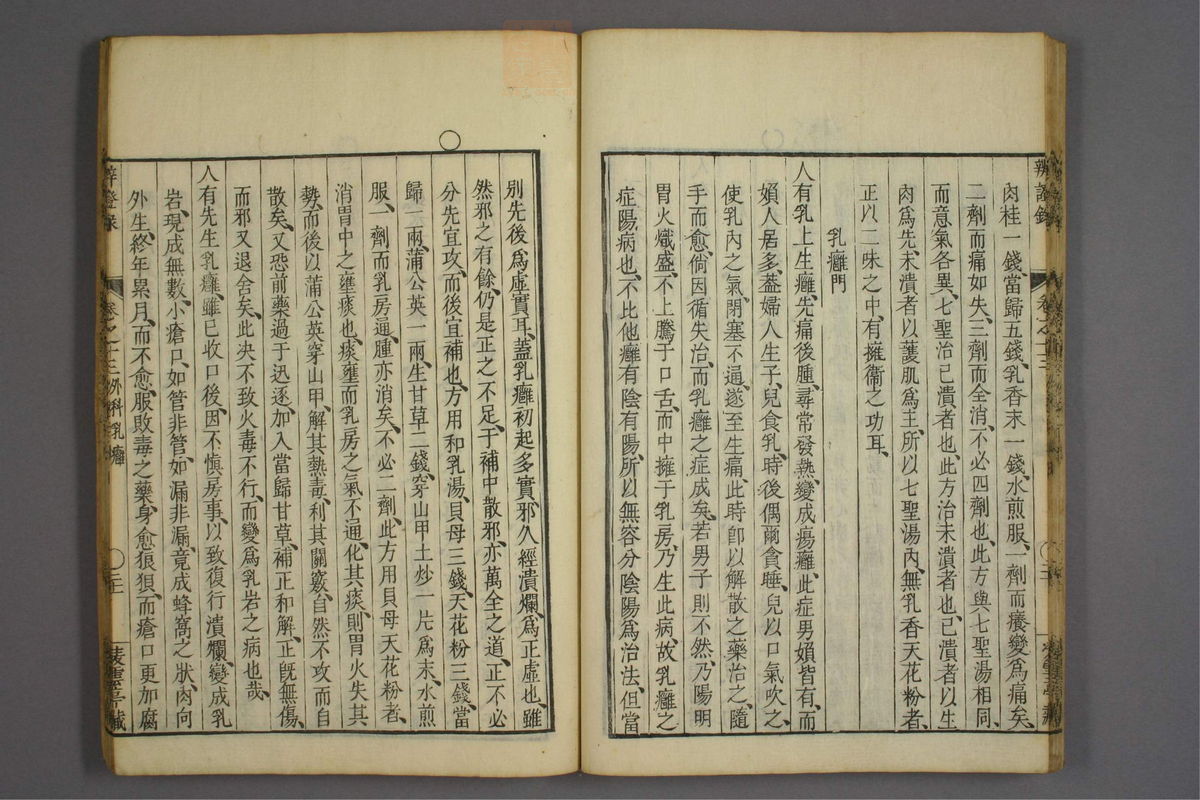 辨證錄
肉桂一錢、當歸五錢、乳香末一錢、水煎服、一劑而癢變爲痛矣、
二劑而痛如失、三劑而全消、不必四劑也、此方與七聖湯相同、
而意氣各異、七聖治已潰者也、此方治未潰者也、已潰者以生
肉爲先、未潰者以護肌爲主、所以七聖湯內、無乳香天花粉者、
正以二味之中、有擁衞之功耳、
乳癰門
人有乳上生癰、先痛後腫、尋常發熱、變成瘍癰、此症男婦皆有、而
婦人居多、葢婦人生子、兒食乳、時後偶爾貪睡、兒以口氣吹之、
使乳內之氣、閉塞不通、遂至生痛、此時卽以解散之藥治之、隨
手而愈、倘因循失治、而乳癰之症成矣、若男子則不然、乃陽明
胃火熾盛、不上騰于口舌、而中擁于乳房、乃生此病、故乳癰之
症、陽病也、不比他癰有陰有陽、所以無容分陰陽爲治法、但當
別先後爲虛實耳、葢乳癰初起多實、邪久經潰爛、爲正虛也、雖
然邪之有餘、仍是正之不足、于補中散邪、亦萬全之道、正不必
分先宜攻、而後宜補也、方用和乳湯、貝母三錢、天花粉三錢、當
歸一兩、蒲公英一兩、生甘草二錢、穿山甲土炒一片、爲末、水煎
服、一劑而乳房通、腫亦消矣、不必二劑、此方用貝母天花粉者、
消胃中之壅痰也、痰壅而乳房之氣不通、化其痰、則胃火失其
勢、而後以蒲公英穿山甲、解其熱毒、利其關竅、自然不攻而自
散矣、又恐前藥過于迅逐、加入當歸甘草、補正和解、正旣無傷、
而邪又退舍矣、此決不致火毒不行、而變爲乳岩之病也哉、
人有先生乳癰、雖已收口後、因不慎房事、以致復行潰爛、變成乳
岩、現成無數小瘡口、如管非管、如漏非漏、竟成蜂窩之狀、肉向
外生、終年累月、而不愈、服敗毒之藥、身愈狼狽、而瘡口更加腐
辨證錄 卷之十三 外科乳癰